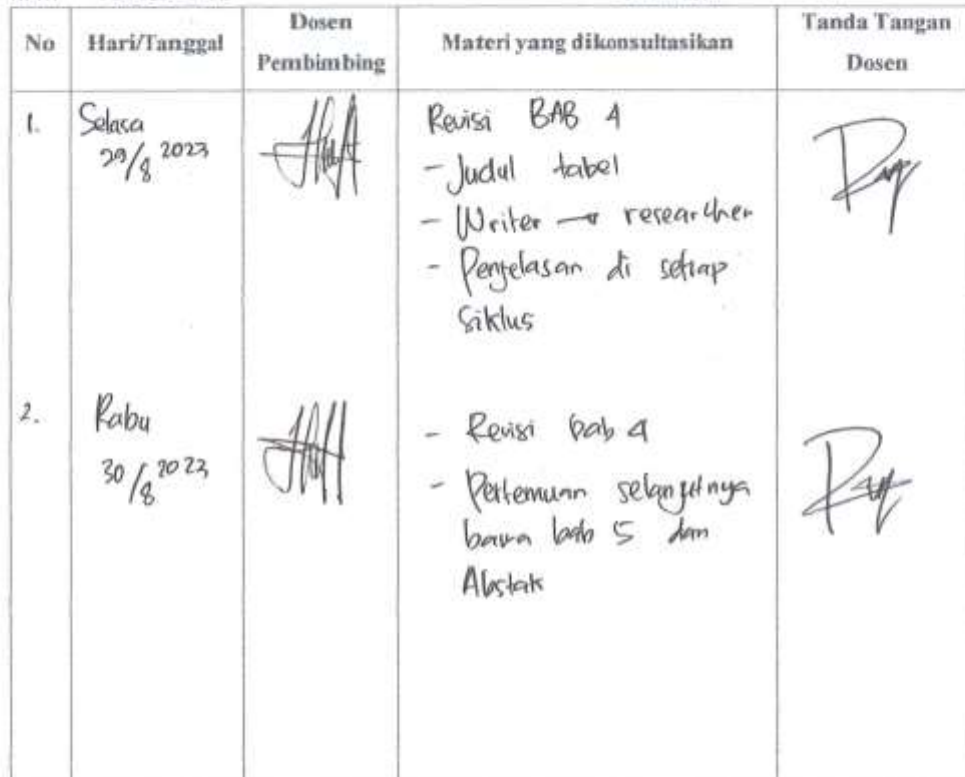 No Hari/Tanggal Dosen Pembimbing Materi yang dikonsultasikan Tanda Tangan Dosen
1. Selasa
29/8 2023
Revisi BAB 4
- Judul tabel
- Writer → researcher
- Penjelasan di setiap
siklus
2. Rabu
30/8 2023
- Revisi bab 4
- Pertemuan selanjutnya
bawa bab 5 dan
Abstak